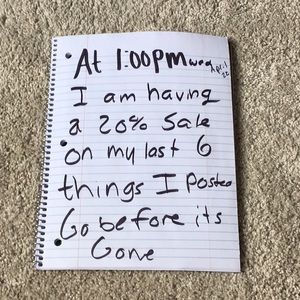 At 1:00pm Wed April 22
I am having
a 20% Sale
on my last 6
things I Posted
Go before its
Gone